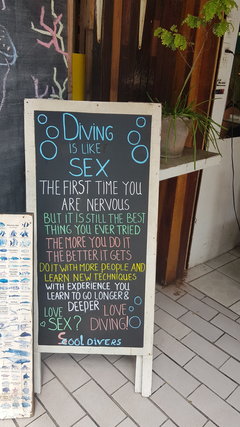 DIVING
IS LIKE
SEX
THE FIRST TIME YOU
ARE NERVOUS
BUT IT IS STILL THE BEST
THING YOU EVER TRIED
THE MORE YOU DO IT
THE BETTER IT GETS
DO IT WITH MORE PEOPLE AND
LEARN NEW TECHNIQUES
WITH EXPERIENCE YOU
LEARN TO GO LONGER &
DEEPER
LOVE LOVE
SEX? DIVING!
COOL DIVERS